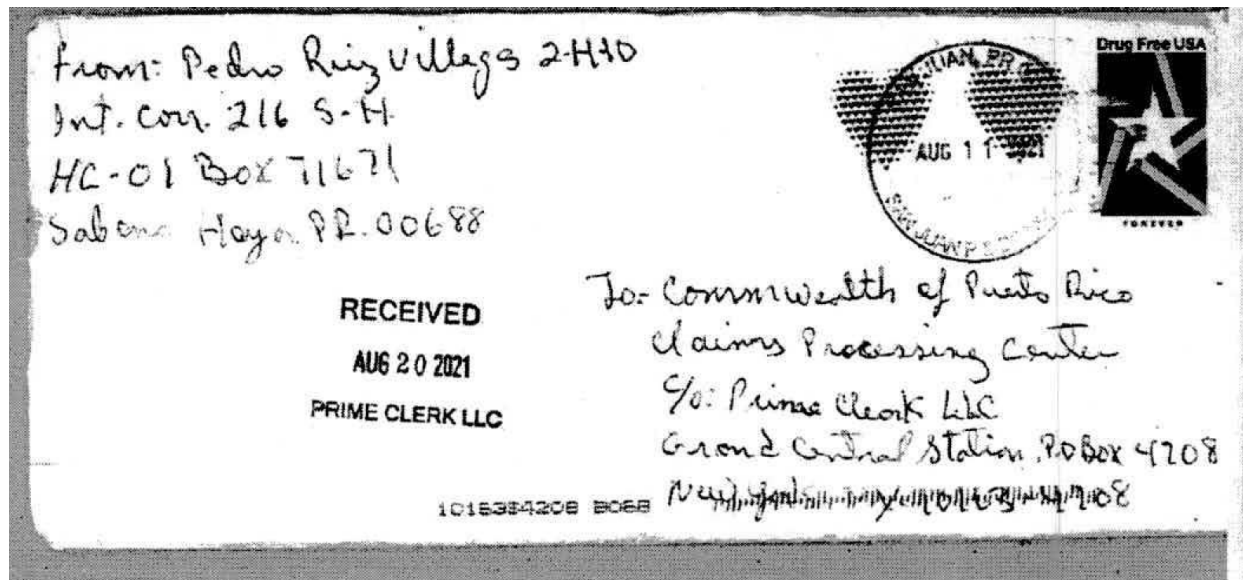 From: Pedro Ruiz Villegas 2-H10
Int. Corr. 216 S-H
HC-01 Box 71671
Sabana Hoya PR. 00688
Drug Free USA
FOREVER
SAN JUAN, PR
AUG 11 2021
SAN JUAN P
RECEIVED
AUG 20 2021
PRIME CLERK LLC
To: Commwealth of Puerto Rico
Claims Processing Center
c/o: Prime Clerk LLC
Grand Central Station, PO Box 4708
New York 10163-4708
1016334208 B068